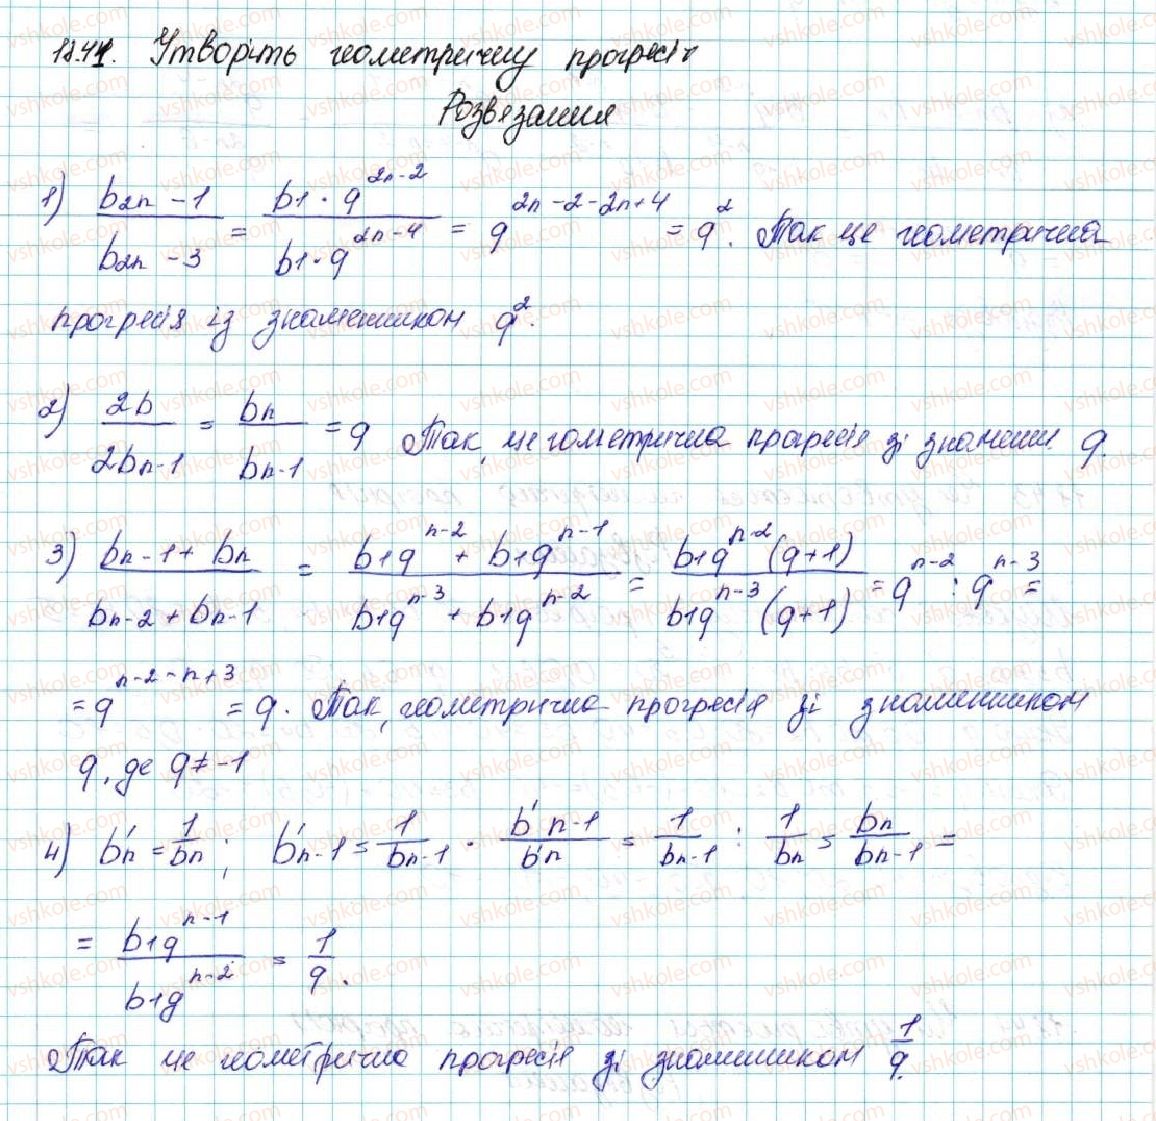 18.41. Утворіть геометричну прогресію
Розвязання
1) b2n - 1 / b2n - 3 = b1 · q^2n-2 / b1 · q^2n-4 = q^2n-2-2n+4 = q^2. Так це геометрична
прогресія із знаменником q^2.
2) 2b / 2bn-1 = bn / bn-1 = q Так, це геометрична прогресія зі знаменик. q.
3) bn-1 + bn / bn-2 + bn-1 = b1q^n-2 + b1q^n-1 / b1q^n-3 + b1q^n-2 = b1q^n-2 (q+1) / b1q^n-3 (q+1) = q^n-2 : q^n-3 =
= q^n-2-n+3 = q. Так, геометрична прогресія зі знаменником
q, де q ≠ -1
4) b'n = 1/bn ; b'n-1 = 1/bn-1 · b'n-1 / b'n = 1/bn-1 : 1/bn = bn/bn-1 =
= b1q^n-1 / b1q^n-2 = 1/q.
Так це геометрічна прогресія зі знаменником 1/q.